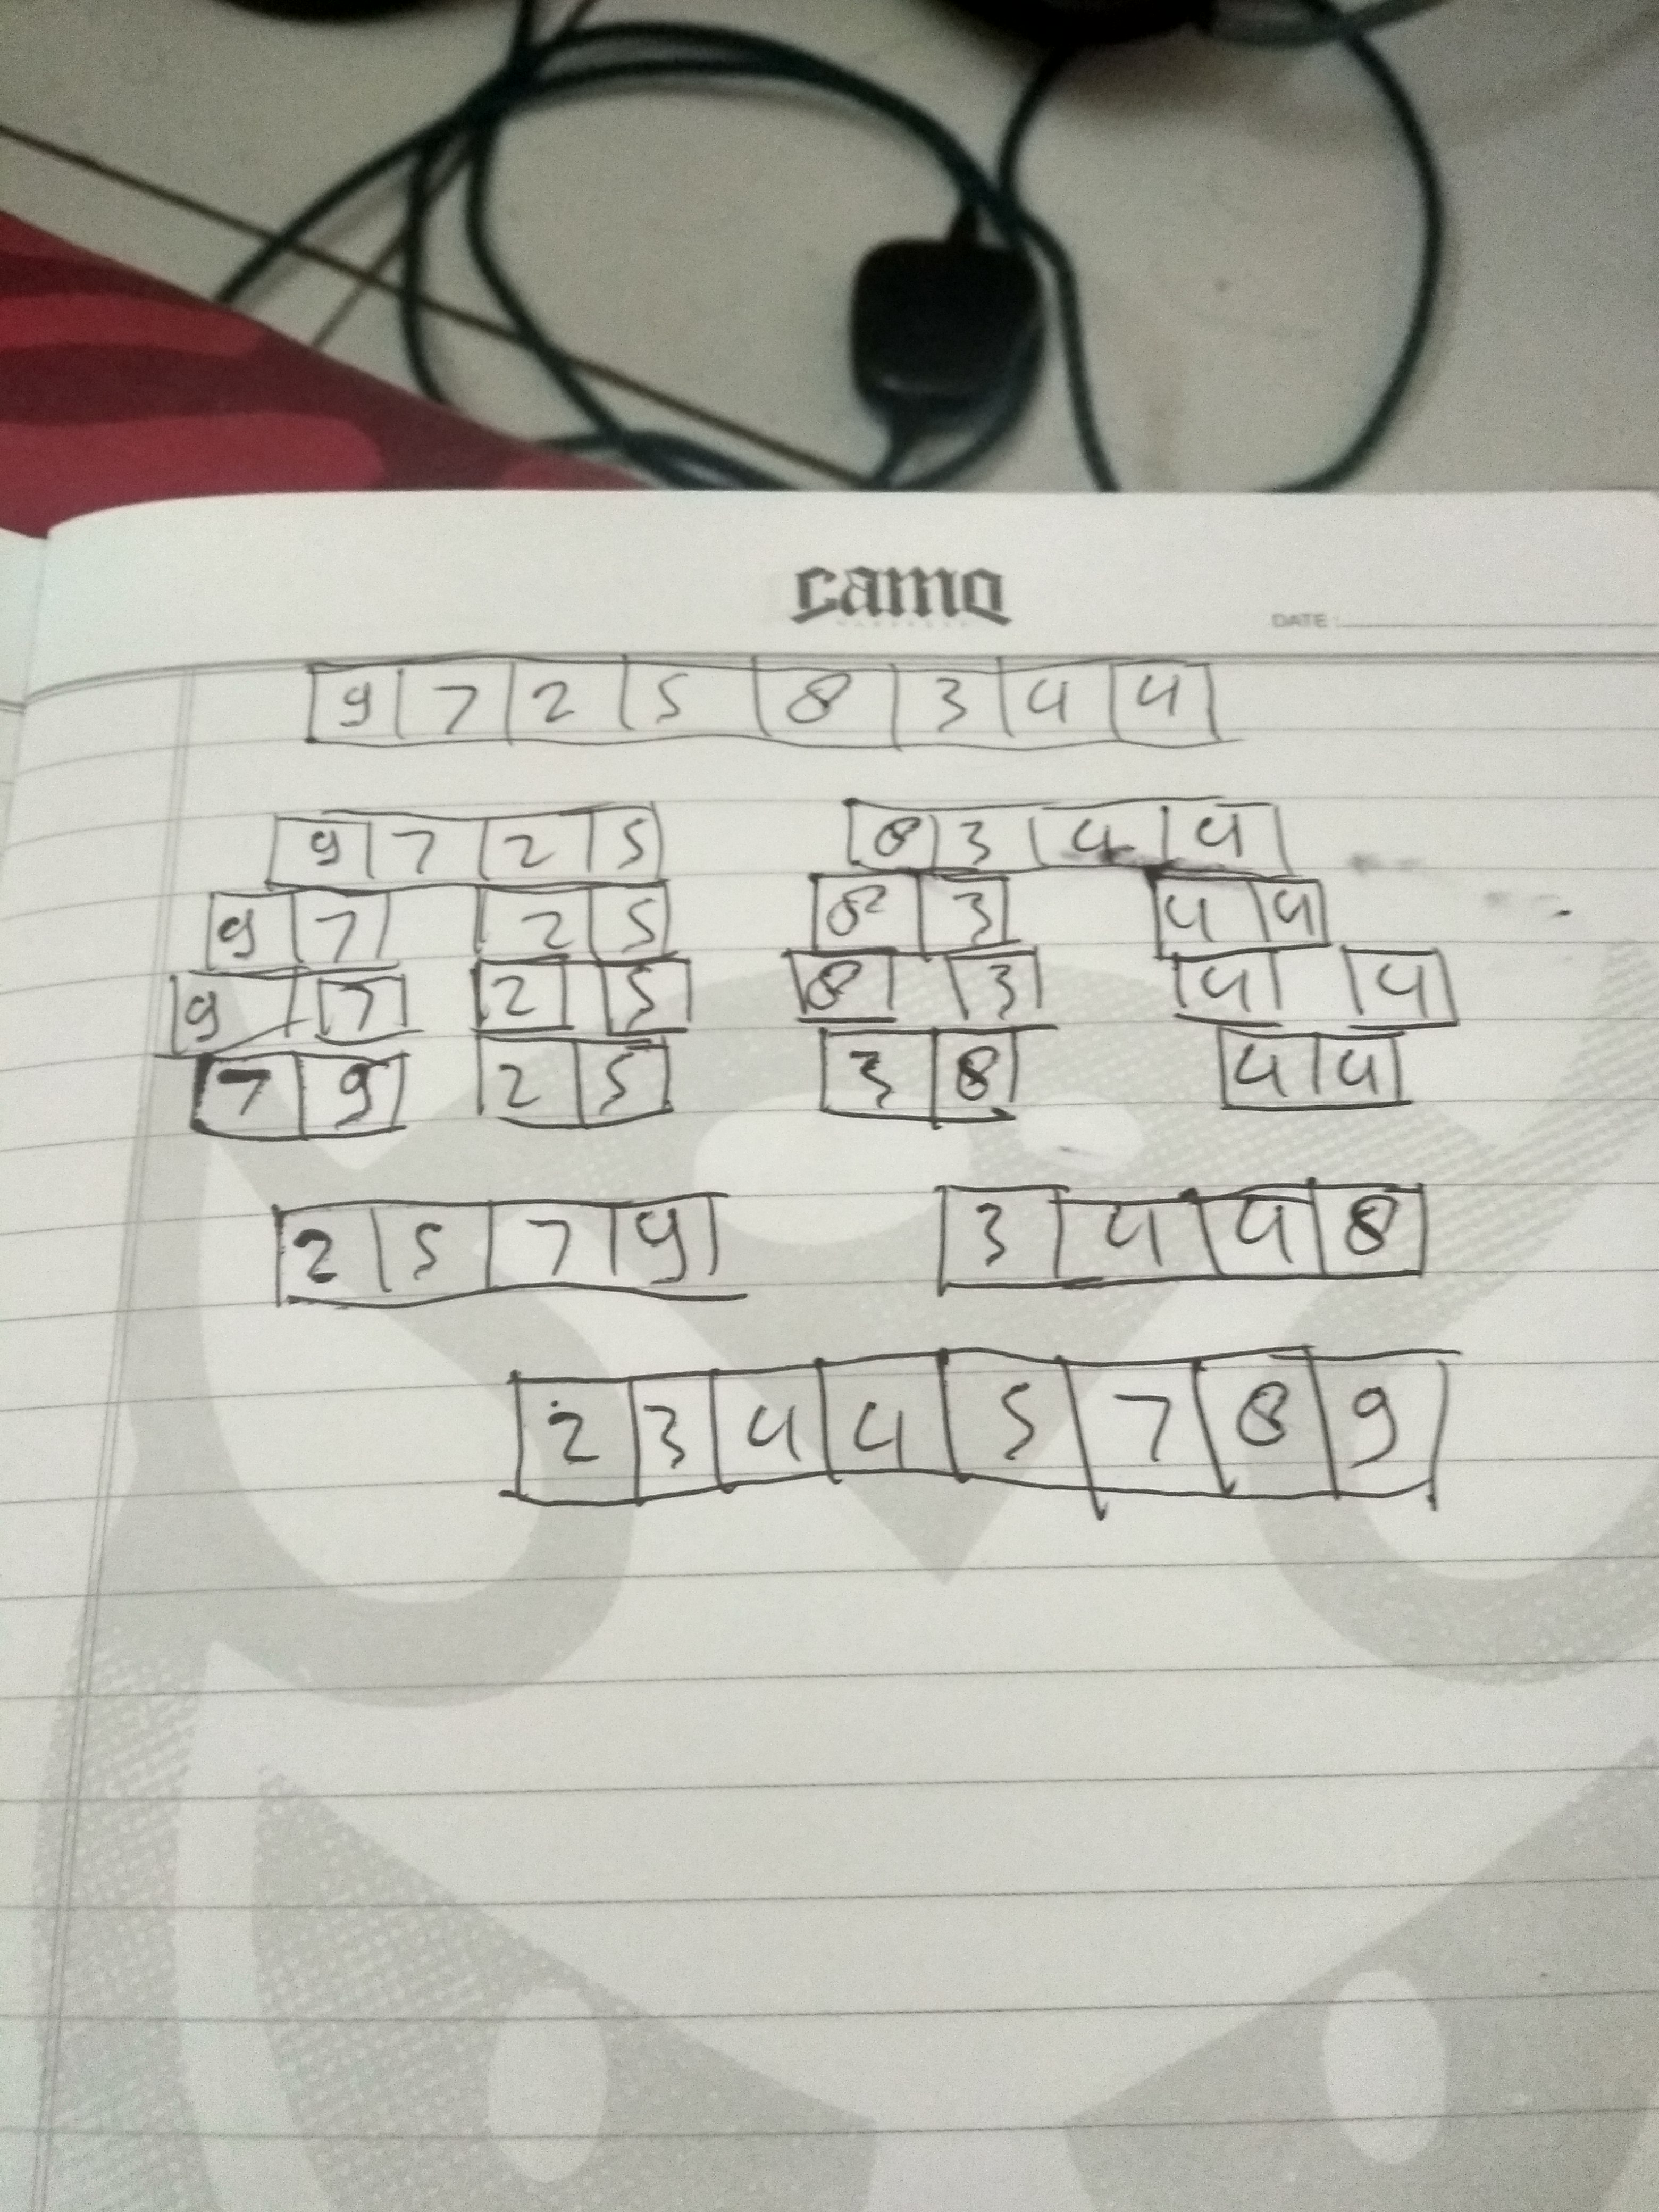 camo
DATE :
9 7 2 5 8 3 4 4
9 7 2 5 8 3 4 4
9 7 2 5 8 3 4 4
9 7 2 5 8 3 4 4
7 9 2 5 3 8 4 4
2 5 7 9 3 4 4 8
2 3 4 4 5 7 8 9